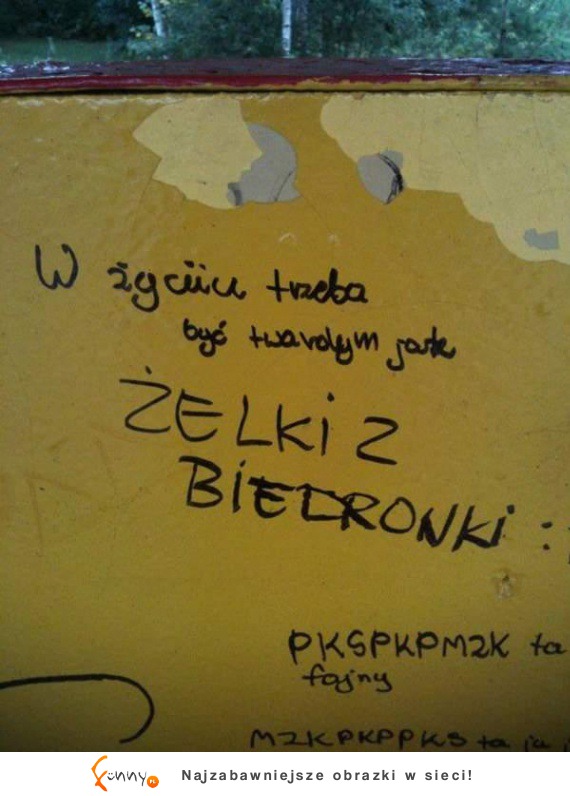 W życiu trzeba
być twardym jak
ŻELKI Z
BIEDRONKI :
PKSPKPMZK ta
fajny
MZKPKPPKS ta ja
Funny.PL Najzabawniejsze obrazki w sieci!